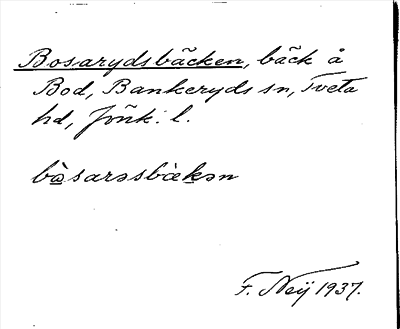 Bosarydsbäcken, bäck å
Bod, Bankeryds sn, Tveta
hd, Jönk. l.
bò̱sarəsbæ̀ḵən
F. Neij 1937.